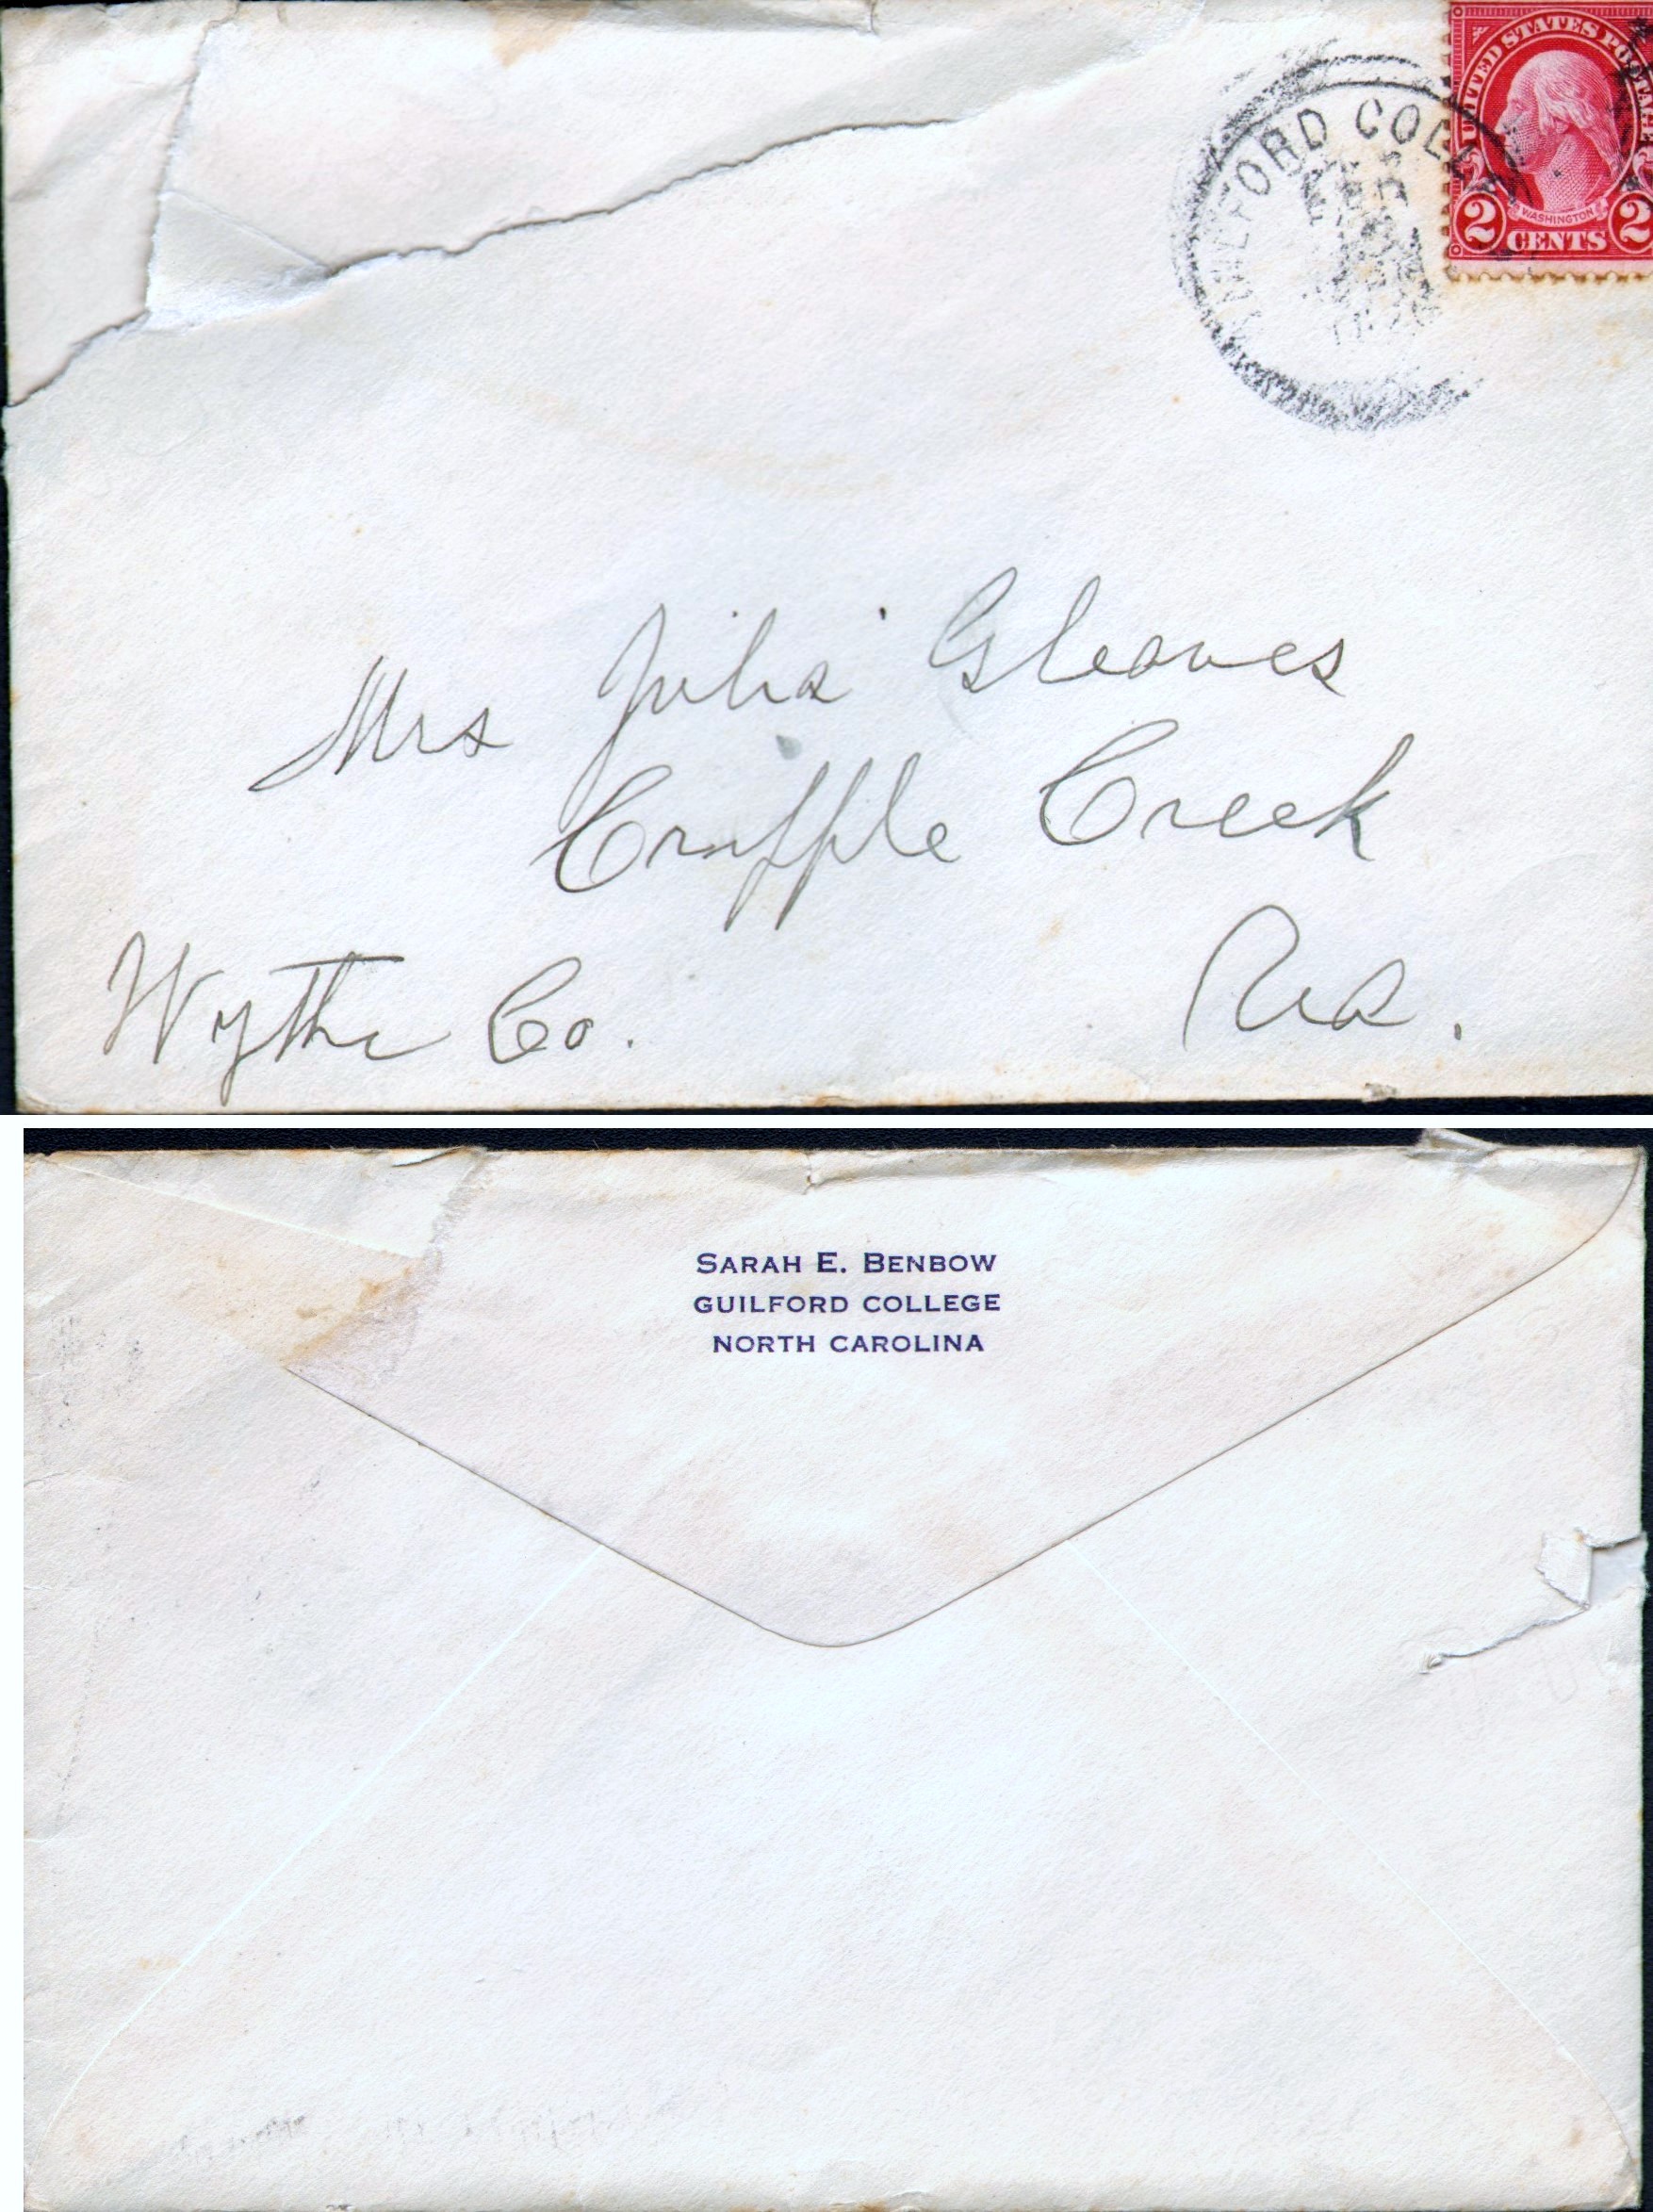 UNITED STATES POSTAGE
WASHINGTON
2 CENTS 2
GUILFORD COLL
Mrs Julia Gleaves
Cripple Creek
Wythe Co. Va.
SARAH E. BENBOW
GUILFORD COLLEGE
NORTH CAROLINA